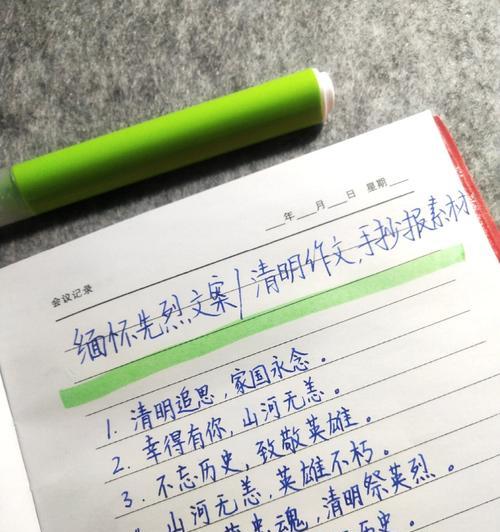 ____年____月____日 星期____
会议记录
缅怀先烈文案/清明作文,手抄报素材
1. 清明追思，家国永念。
2. 幸得有你，山河无恙。
3. 不忘历史，致敬英雄。
山河无恙，英雄不朽。
史魂，清明祭英烈。
历史。